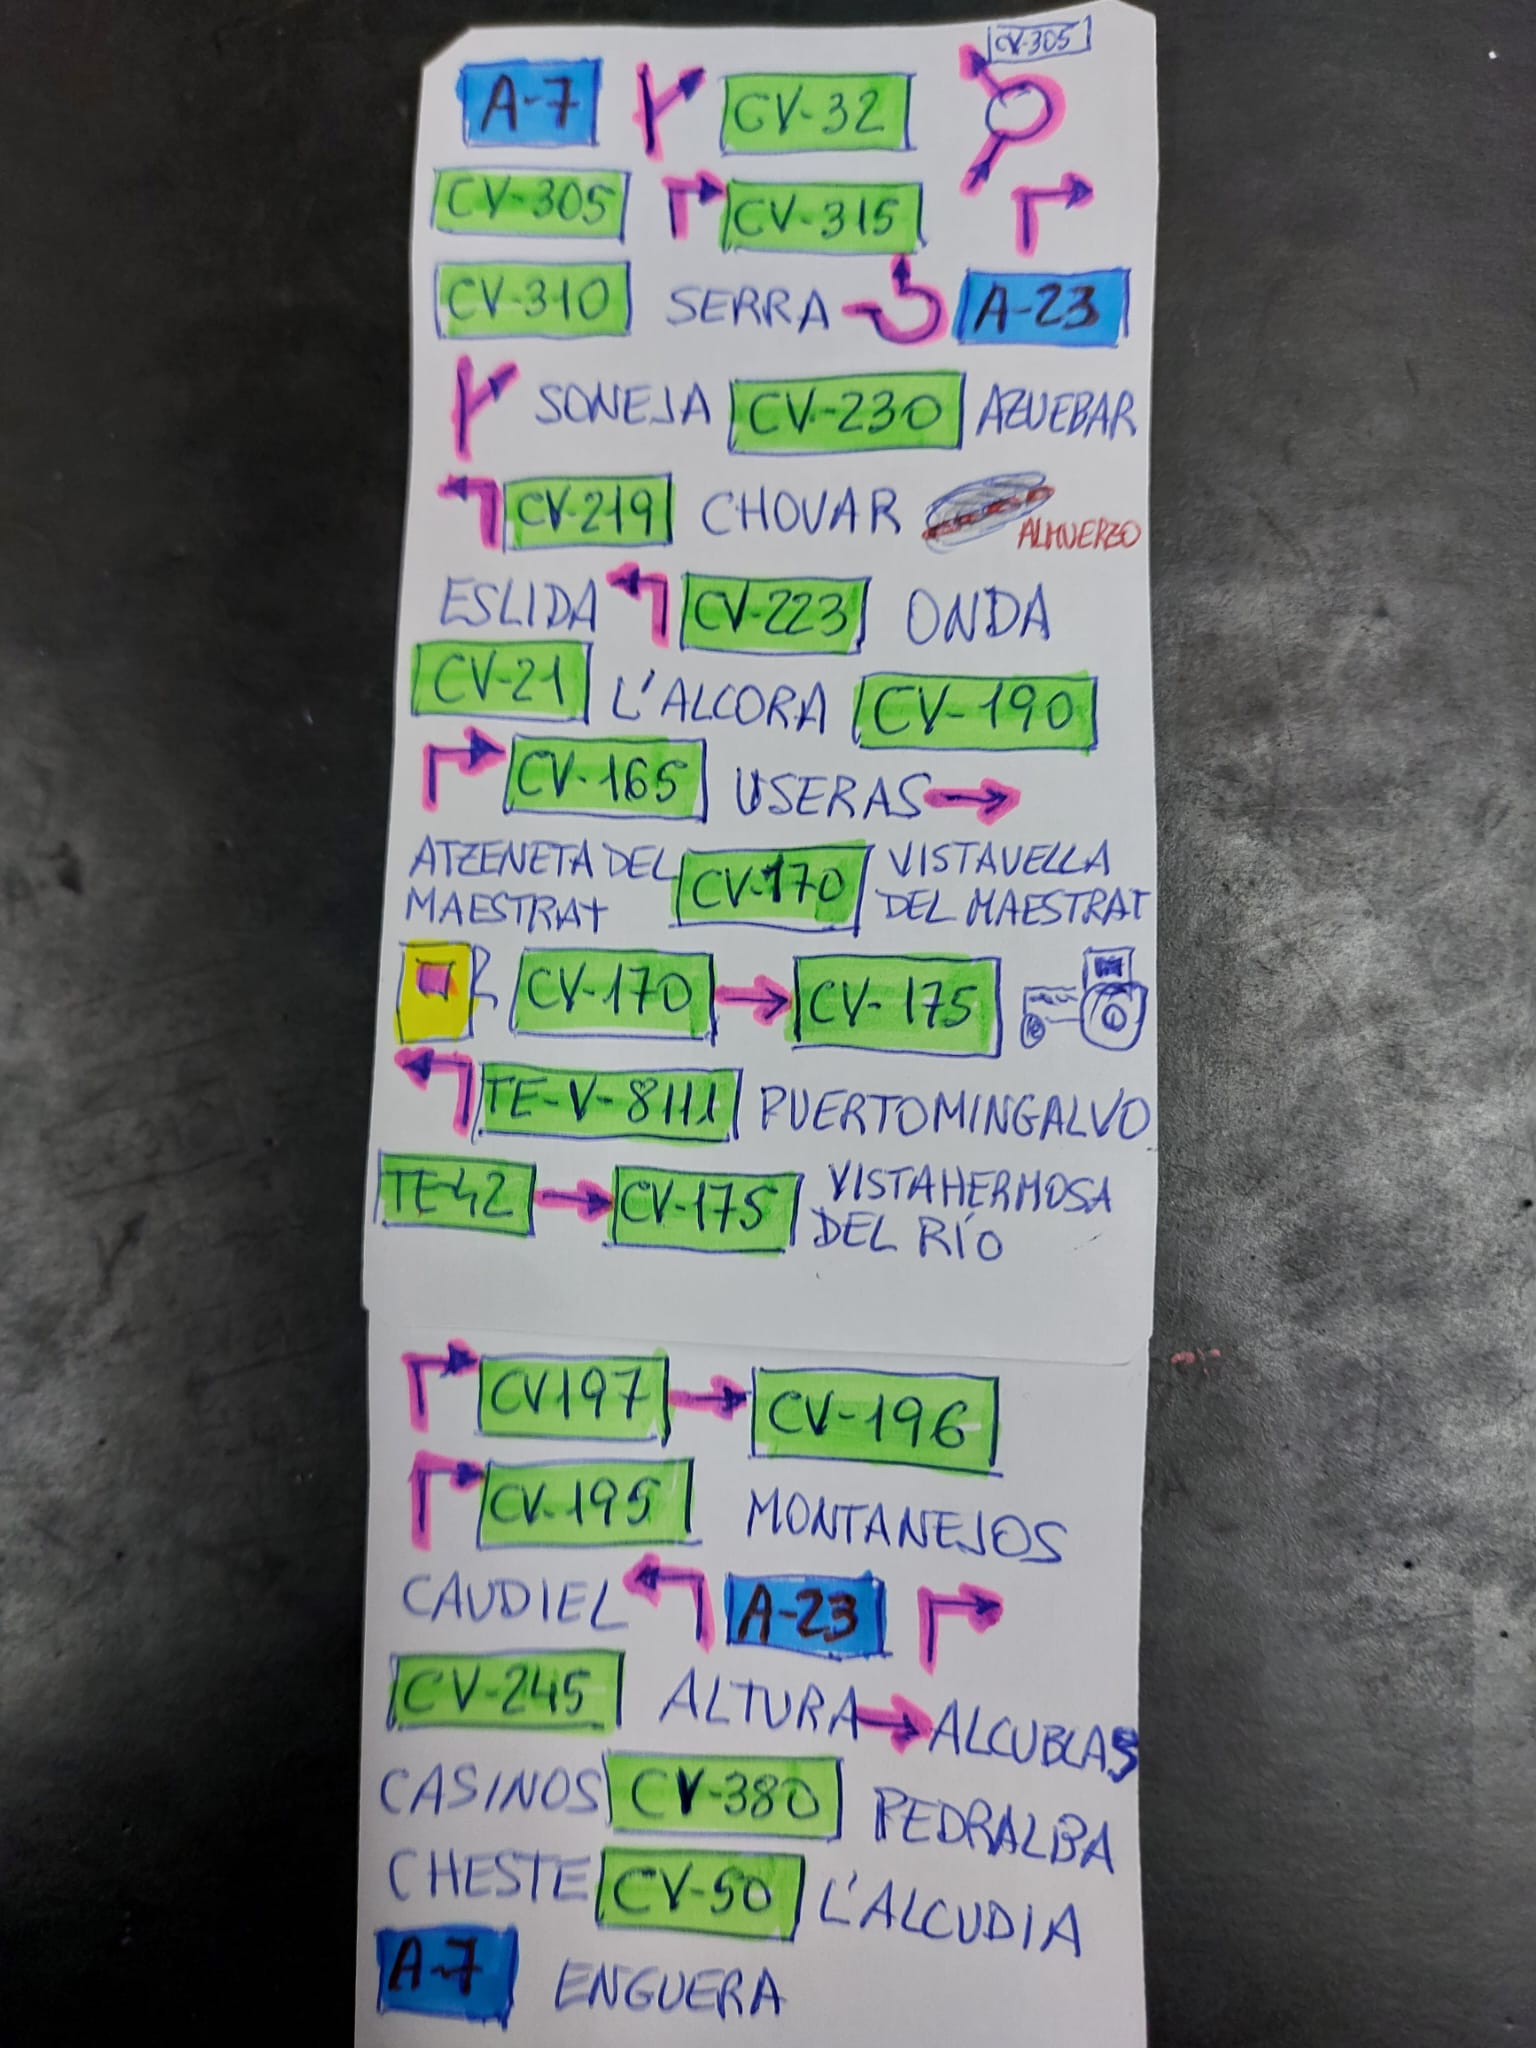 CV-305
A-7 CV-32
CV-305 CV-315
CV-310 SERRA A-23
SONEJA CV-230 AZUEBAR
CV-219 CHOVAR ALMUERZO
ESLIDA CV-223 ONDA
CV-21 L'ALCORA CV-190
CV-165 USERAS
ATZENETA DEL MAESTRAT CV-170 VISTAVELLA DEL MAESTRAT
CV-170 CV-175
TE-V-8111 PUERTOMINGALVO
TE-42 CV-175 VISTAHERMOSA DEL RÍO
CV197 CV-196
CV-195 MONTANEJOS
CAUDIEL A-23
CV-245 ALTURA ALCUBLAS
CASINOS CV-380 PEDRALBA
CHESTE CV-50 L'ALCUDIA
A-7 ENGUERA